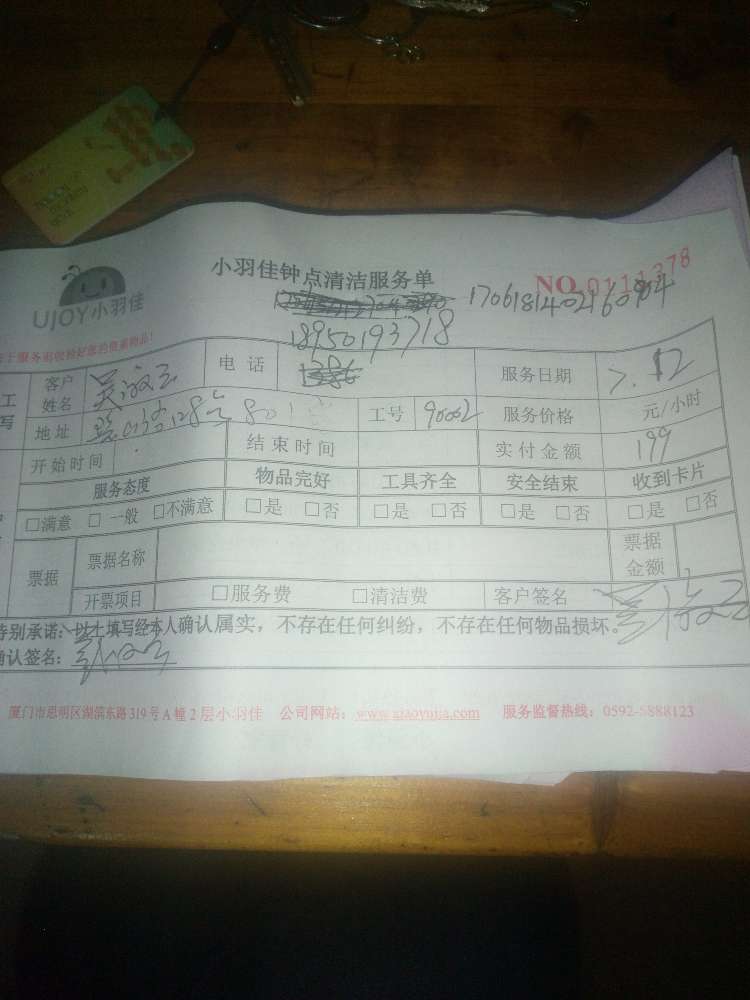 小羽佳钟点清洁服务单
NO.0111378
UJOY小羽佳
18950193718
客户姓名 电话 服务日期 7.12
地址 128号 801 工号 90002 服务价格 元/小时
开始时间 结束时间 实付金额 199
服务态度 物品完好 工具齐全 安全结束 收到卡片
□满意 □一般 □不满意 □是 □否 □是 □否 □是 □否 □是 □否
票据 票据名称 票据金额
开票项目 □服务费 □清洁费 客户签名
特别承诺:以上填写经本人确认属实,不存在任何纠纷,不存在任何物品损坏。
确认签名:
厦门市思明区湖滨东路319号A幢2层小羽佳 公司网站:www.xiaoyujia.com 服务监督热线:0592-5888123